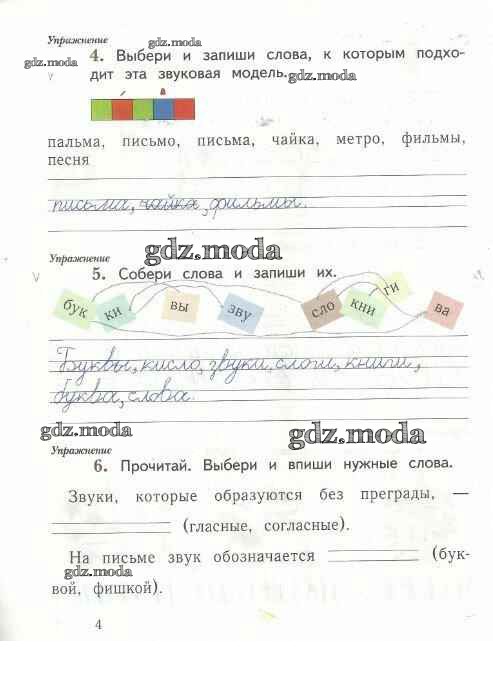 Упражнение
gdz.moda
4. Выбери и запиши слова, к которым подхо-
gdz.moda
дит эта звуковая модель.gdz.moda
пальма, письмо, письма, чайка, метро, фильмы,
песня
письма, чайка, фильмы.
gdz.moda
Упражнение
5. Собери слова и запиши их.
бук ки вы зву сло кни ги ва
Буквы, кисло, звуки, слоги, книги,
буква, слова.
gdz.moda
gdz.moda
Упражнение
6. Прочитай. Выбери и впиши нужные слова.
Звуки, которые образуются без преграды, —
(гласные, согласные).
На письме звук обозначается (бук-
gdz.moda
вой, фишкой).
4